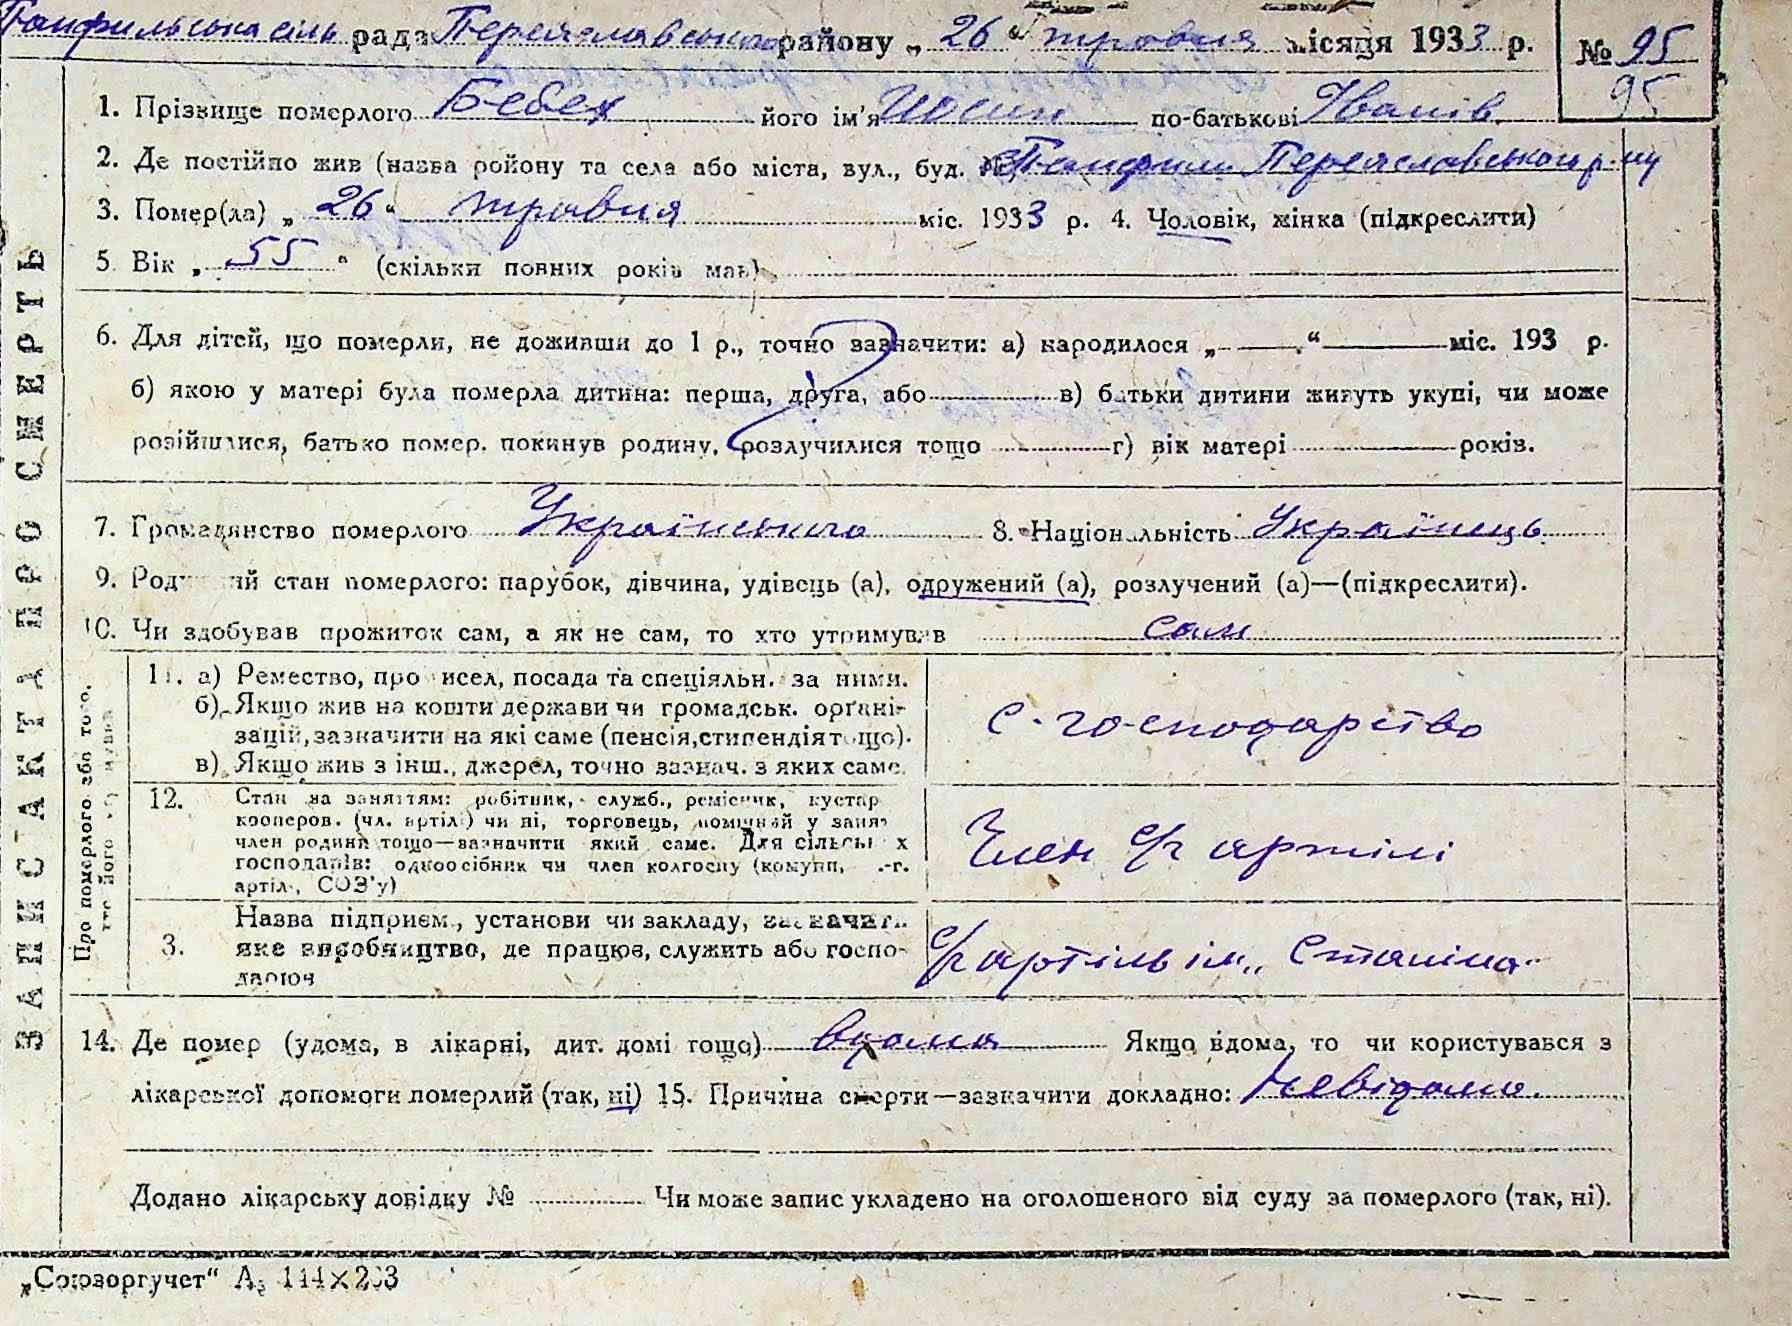 Панфильська сіль рада Переяславського району „ 26 “ травня місяця 1933 р. № 95
95
1. Прізвище померлого Бебех його ім'я Йосип по-батькові Іванів.
2. Де постійно жив (назва району та села або міста, вул., буд. №) Панфили Переяславського р-ну
3. Помер(ла) „ 26 “ травня міс. 1933 р. 4. Чоловік, жінка (підкреслити)
5. Вік „ 55 “ (скільки повних років мав)
6. Для дітей, що померли, не доживши до 1 р., точно зазначити: а) народилося „ “ міс. 193 р.
б) якою у матері була померла дитина: перша, друга, або в) батьки дитини живуть укупі, чи може
розійшлися, батько помер, покинув родину, розлучилися тощо г) вік матері років.
7. Громадянство померлого Українського 8. Національність Українець
9. Родинний стан померлого: парубок, дівчина, удівець (а), одружений (а), розлучений (а)—(підкреслити).
10. Чи здобував прожиток сам, а як не сам, то хто утримував сам
11. а) Ремество, промисел, посада та спеціяльн. за ними.
б) Якщо жив на кошти держави чи громадськ. орґані-
зацій, зазначити на які саме (пенсія, стипендія тощо).
в) Якщо жив з інш., джерел, точно зазнач. з яких саме.
с-господарство
12. Стан за заняттям: робітник, служб., ремісник, кустар
кооперов. (чл. артілі) чи ні, торговець, помічний у занят
член родини тощо—зазначити який саме. Для сільських
господарів: одноосібник чи член колгоспу (комуни, с.-г.
артілі, СОЗ'у)
Член с/г артілі
13. Назва підприєм., установи чи закладу, зазначити
яке виробництво, де працює, служить або госпо-
дарює
с/г артіль ім. „Сталіна“
14. Де помер (удома, в лікарні, дит. домі тощо) вдома Якщо вдома, то чи користувався з
лікарської допомоги померлий (так, ні) 15. Причина смерти—зазначити докладно: Невідома.
Додано лікарську довідку № Чи може запис укладено на оголошеного від суду за померлого (так, ні).
„Союзоргучет“
ЗАПИС АКТА ПРО СМЕРТЬ
Про померлого або того,